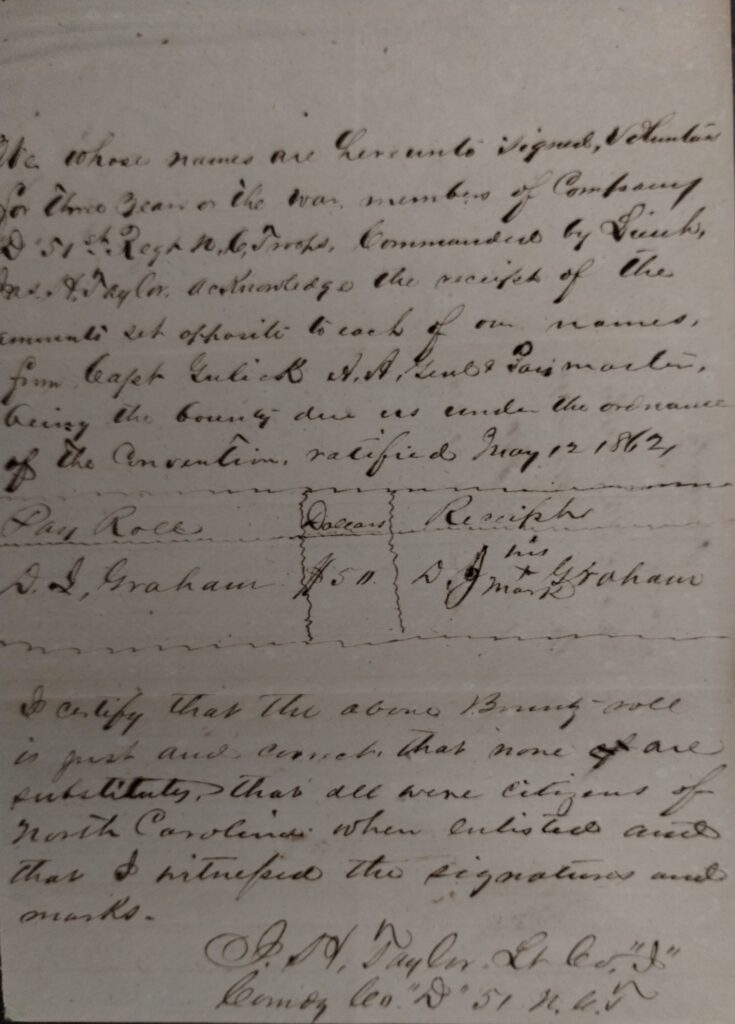 We whose names are hereunto signed, Volunteers
for three years or the war, members of Company
D 51st Regt N. C. Troops, Commanded by Lieut.
Jas. H. Taylor. acknowledge the receipt of the
amounts set opposite to each of our names,
from Capt Gulick A. A. Genl & Paymaster,
being the bounty due us under the ordnance
of the Convention, ratified May 12 1862,
Pay Roll Dollars Receipts
D. J. Graham $50 D J his + mark Graham
I certify that the above Bounty roll
is just and correct, that none of are
substitutes, that all were citizens of
North Carolina when enlisted and
that I witnessed the signatures and
marks.
J. H. Taylor. Lt Co. "I"
Comdg Co "D" 51 N. C. T